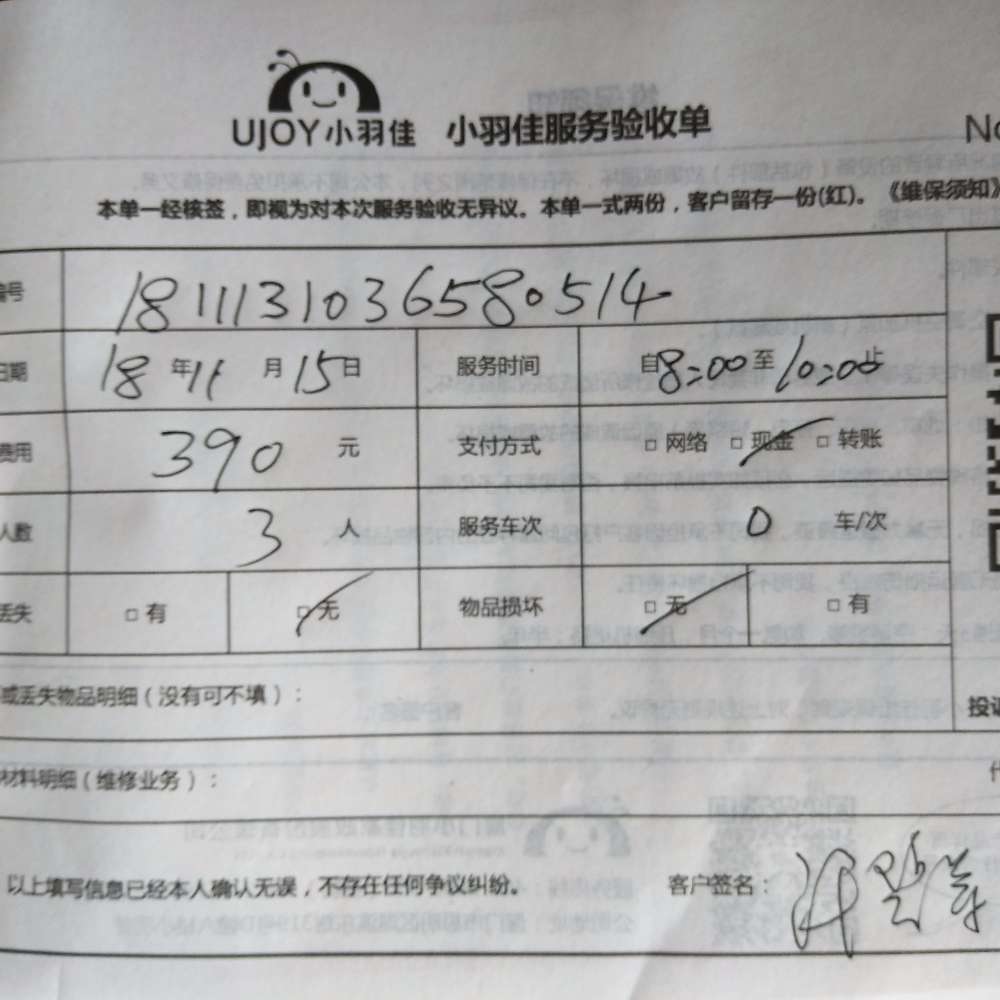 UJOY小羽佳 小羽佳服务验收单 No
本单一经核签，即视为对本次服务验收无异议。本单一式两份，客户留存一份(红)。《维保须知》
编号 1811131036580514
日期 18年11月15日 服务时间 自8:00至10:00止
费用 390元 支付方式 □网络 □现金 □转账
人数 3人 服务车次 0车/次
丢失 □有 □无 物品损坏 □无 □有
或丢失物品明细（没有可不填）：
投诉
材料明细（维修业务）：
以上填写信息已经本人确认无误，不存在任何争议纠纷。 客户签名：